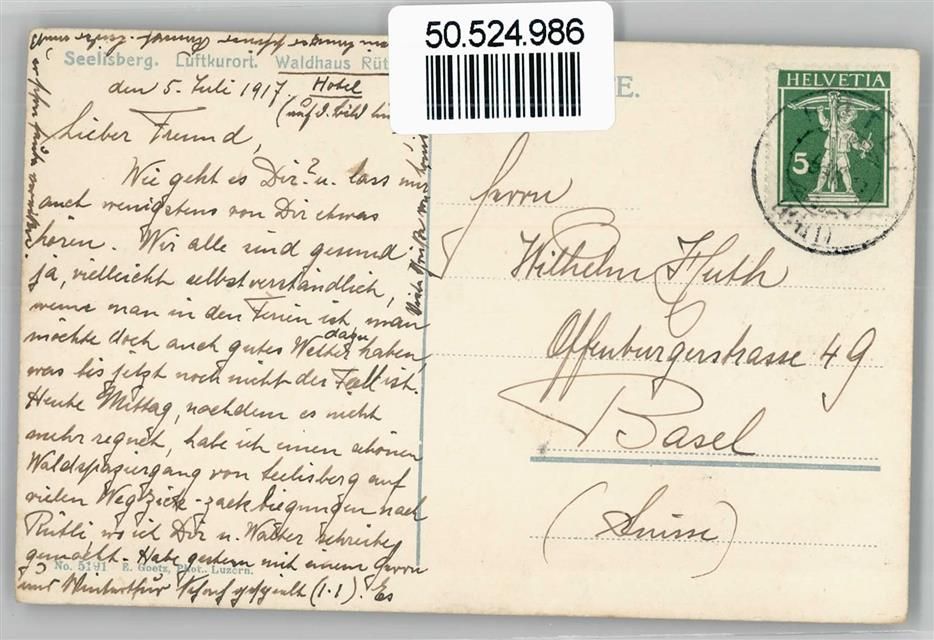 50.524.986
Seelisberg. Luftkurort. Waldhaus Rüt
E.
HELVETIA
5
den 5. Juli 1917. Hotel
(auf d. Bild
Lieber Freund,
Wie geht es Dir? u. lass mir
auch wenigstens von Dir etwas
hören. Wir alle sind gesund
ja, vielleicht selbstverständlich,
wenn man in den Ferien ist, man
möchte doch auch gutes Wetter dazu haben,
was bis jetzt noch nicht der Fall ist.
Heute Mittag, nachdem es nicht
mehr regnet, habe ich einen schönen
Waldspaziergang von Seelisberg auf
vielen Weg zick-zack biegungen nach
Rütli, wo ich Dir u. Walter schreibe
gemacht. Habe gestern mit einem Herrn
aus Winterthur Schach gespielt (1:1). Es
No. 5191 E. Goetz, Phot., Luzern.
Herrn
Wilhelm Huth
Offenburgerstrasse 49
Basel
(Suisse)